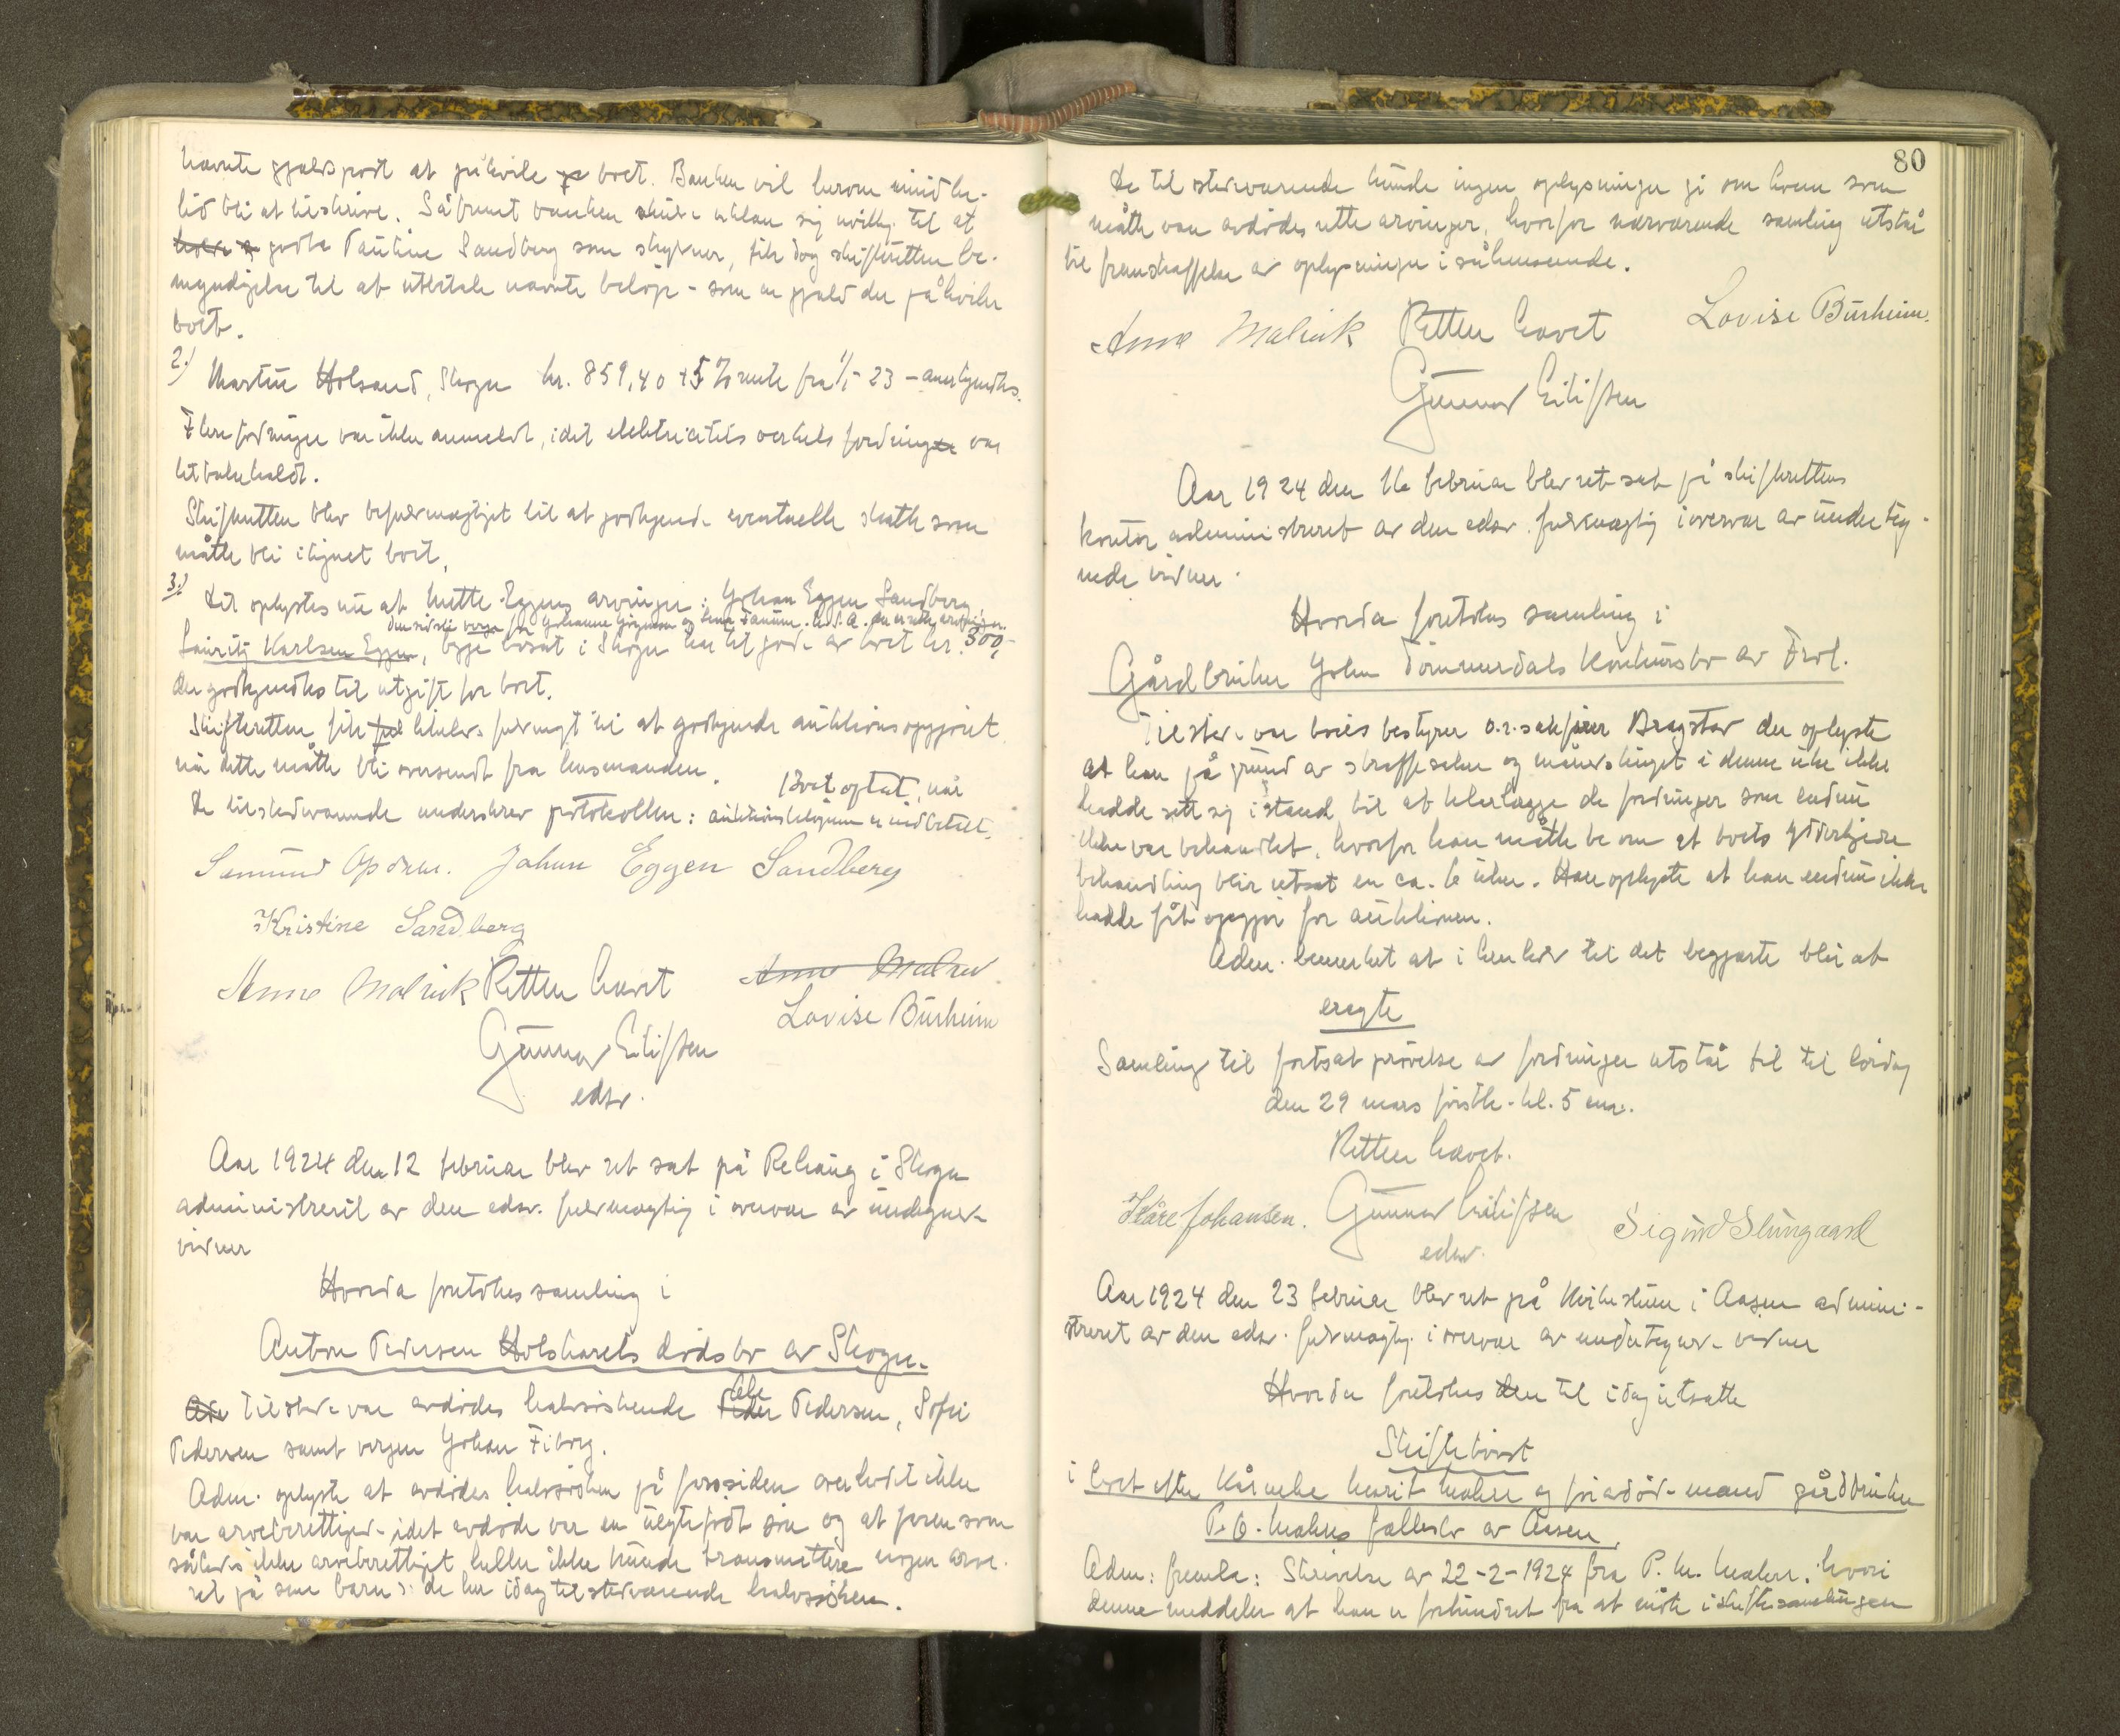 nævnte gjældspost at påhvile boet. Banken vil herom imidler-
tid bli at tilskrive. Såfremt banken skulde erklære sig uvillig til at
godta Pauline Sandberg som skyldner, fik dog skifteretten be-
myndigelse til at utbetale nævnte beløp - som en gjæld der påhviler
boet.
2) Martin Holsand, Skogn kr. 859,40 + 5 % rente fra 1/1 - 23 - anerkjendtes.
Flere fordringer var ikke anmeldt, idet elektricitetsverkets fordring var
tilbakekaldt.
Skifteretten blev befuldmægtiget til at godkjende eventuelle skatte som
måtte bli ilignet boet.
3) Det oplystes nu at Mette Eggens arvinger: Johan Eggen Sandberg,
den sidste verge for
Lauritz Karlsen Eggen, begge bosat i Skogn har tilgode av boet kr. 300,-
der godkjendtes til utgift for boet.
Skifteretten fik likeledes fuldmagt til at godkjende auktionsopgjøret
når dette måtte bli oversendt fra lensmanden.
Boet optat, når
De tilstedeværende underskrev protokollen: auktionsbeløpene er indbetalt.
Johan Eggen Sandberg
Kristine Sandberg
Anna Malvik Retten hævet Anna Malv
Lovise Burheim
Gunnar Eilifsen
edsv.
Aar 1924 den 12 februar blev ret sat på Rehaug i Skogn
administreret av den edsv. fuldmægtig i overvær av undertegnede
vidner
Hvorda foretokes samling i
Anton Pedersen Holskarets dødsbo av Skogn.
Tilstede var avdødes halvsøskende Pedersen, Sofie
Pedersen samt vergen Johan Fiborg.
Adm. oplyste at avdødes halvsøsken på farssiden overhodet ikke
var arveberettiget - idet avdøde var en uegtefødt søn og at faren som
således ikke arveberettiget heller ikke kunde transmittere nogen arve-
ret på sine barn: de her idag tilstedeværende halvsøsken.
80
De tilstedeværende kunde ingen oplysninger gi om hvem som
måtte være avdødes rette arvinger, hvorfor nærværende samling utstår
til fremskaffelse av oplysninger i såhenseende.
Anna Malvik Retten hævet Lovise Burheim.
Gunnar Eilifsen
Aar 1924 den 16 februar blev ret sat på skifterettens
kontor administreret av den edsv. fuldmægtig i overvær av underteg-
nede vidner.
Hvorda foretokes samling i
Gårdbruker John Tømmerdals konkursbo av Frol.
Tilstede var boets bestyrer o.r.sakfører Bragstad der oplyste
at han på grund av straffesaker og i denne uke ikke
hadde sett sig istand til at klarlægge de fordringer som endnu
ikke var behandlet, hvorfor han måtte be om at boets yderligere
behandling blir utsat en ca. 6 uker. Han oplyste at han endnu ikke
hadde fåt opgjør for auktionen.
Adm. bemerket at i henhold til det begjærte blir at
eragte
Samling til fortsat prøvelse av fordringer utstår til til lørdag
den 29 mars førstk. kl. 5 em.
Retten hævet.
Kåre Johansen. Gunnar Eilifsen Sigurd Slungaard
edsv.
Aar 1924 den 23 februar blev ret på Kirkestuen i Aasen admini-
streret av den edsv. fuldmægtig i overvær av undertegnede vidner
Hvorda foretokes den til idag utsatte
Skiftebørst
i boet efter kårenke Marit og forutdøde mand gårdbruker
fællesbo av Aasen.
Adm: fremla: Skrivelse av 22-2-1924 fra P. M. hvori
denne meddeler at han er forhindret fra at møte i skiftesamlingen